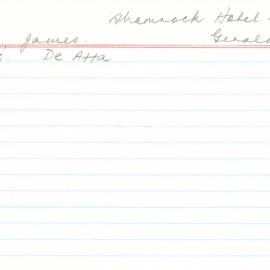 Shamrock Hotel.
James. Gerald
De Atta